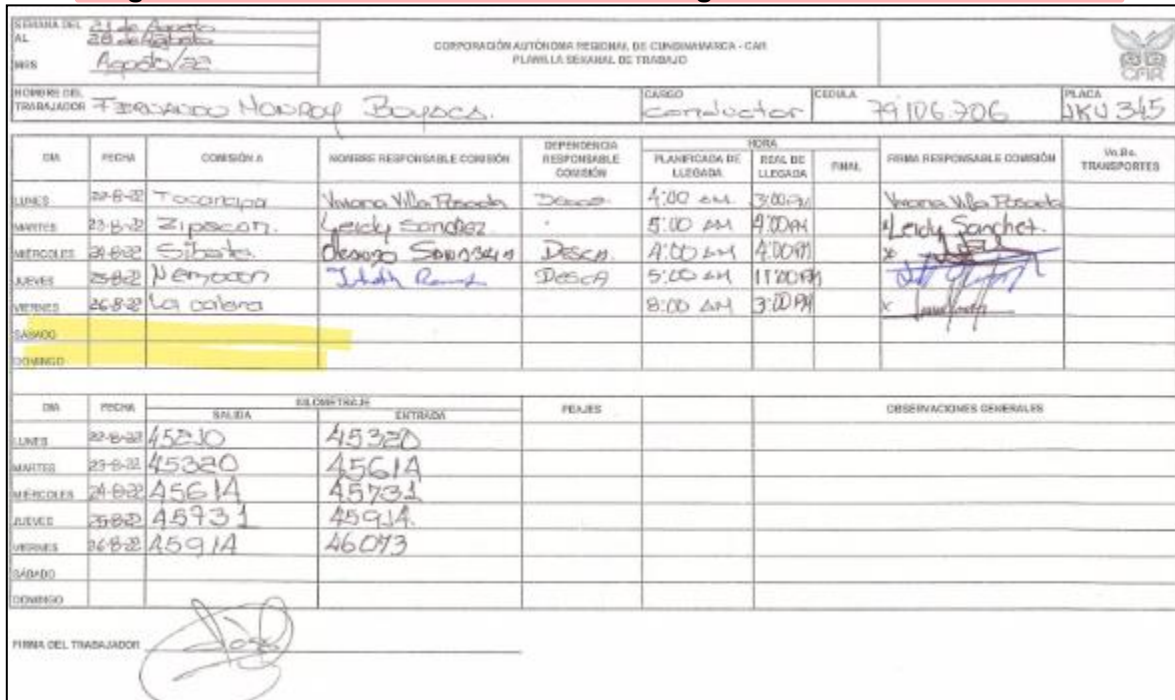 SEMANA DEL 21 de Agosto
AL 28 de Agosto
MES Agosto/22
CORPORACIÓN AUTÓNOMA REGIONAL DE CUNDINAMARCA - CAR
PLANILLA SEMANAL DE TRABAJO
CAR
NOMBRE DEL TRABAJADOR FERNANDO MONROY Boyaca.
CARGO conductor
CEDULA 79106.706
PLACA JKU 345
DIA FECHA COMISIÓN A NOMBRE RESPONSABLE COMISIÓN DEPENDENCIA RESPONSABLE COMISIÓN HORA PLANIFICADA DE LLEGADA REAL DE LLEGADA FINAL FIRMA RESPONSABLE COMISIÓN Vo.Bo. TRANSPORTES
LUNES 22-8-22 Tocancipa Viviana Villa Posada 4:00 AM 3:00 PM Viviana Villa Posada
MARTES 23-8-22 Zipacon. Leidy Sanchez 5:00 AM 9:00 PM Leidy Sanchez.
MIÉRCOLES 24-8-22 Sibate. DESCA. 4:00 AM 4:00 PM
JUEVES 25-8-22 Nemocon Judith DESCA 5:00 AM 11:00 PM
VIERNES 26-8-22 La calera 8:00 AM 3:00 PM
SÁBADO
DOMINGO
DIA FECHA KILOMETRAJE SALIDA ENTRADA PEAJES OBSERVACIONES GENERALES
LUNES 22-8-22 45210 45320
MARTES 23-8-22 45320 45614
MIÉRCOLES 24-8-22 45614 45731
JUEVES 25-8-22 45731 45914.
VIERNES 26-8-22 45914 46073
SÁBADO
DOMINGO
FIRMA DEL TRABAJADOR